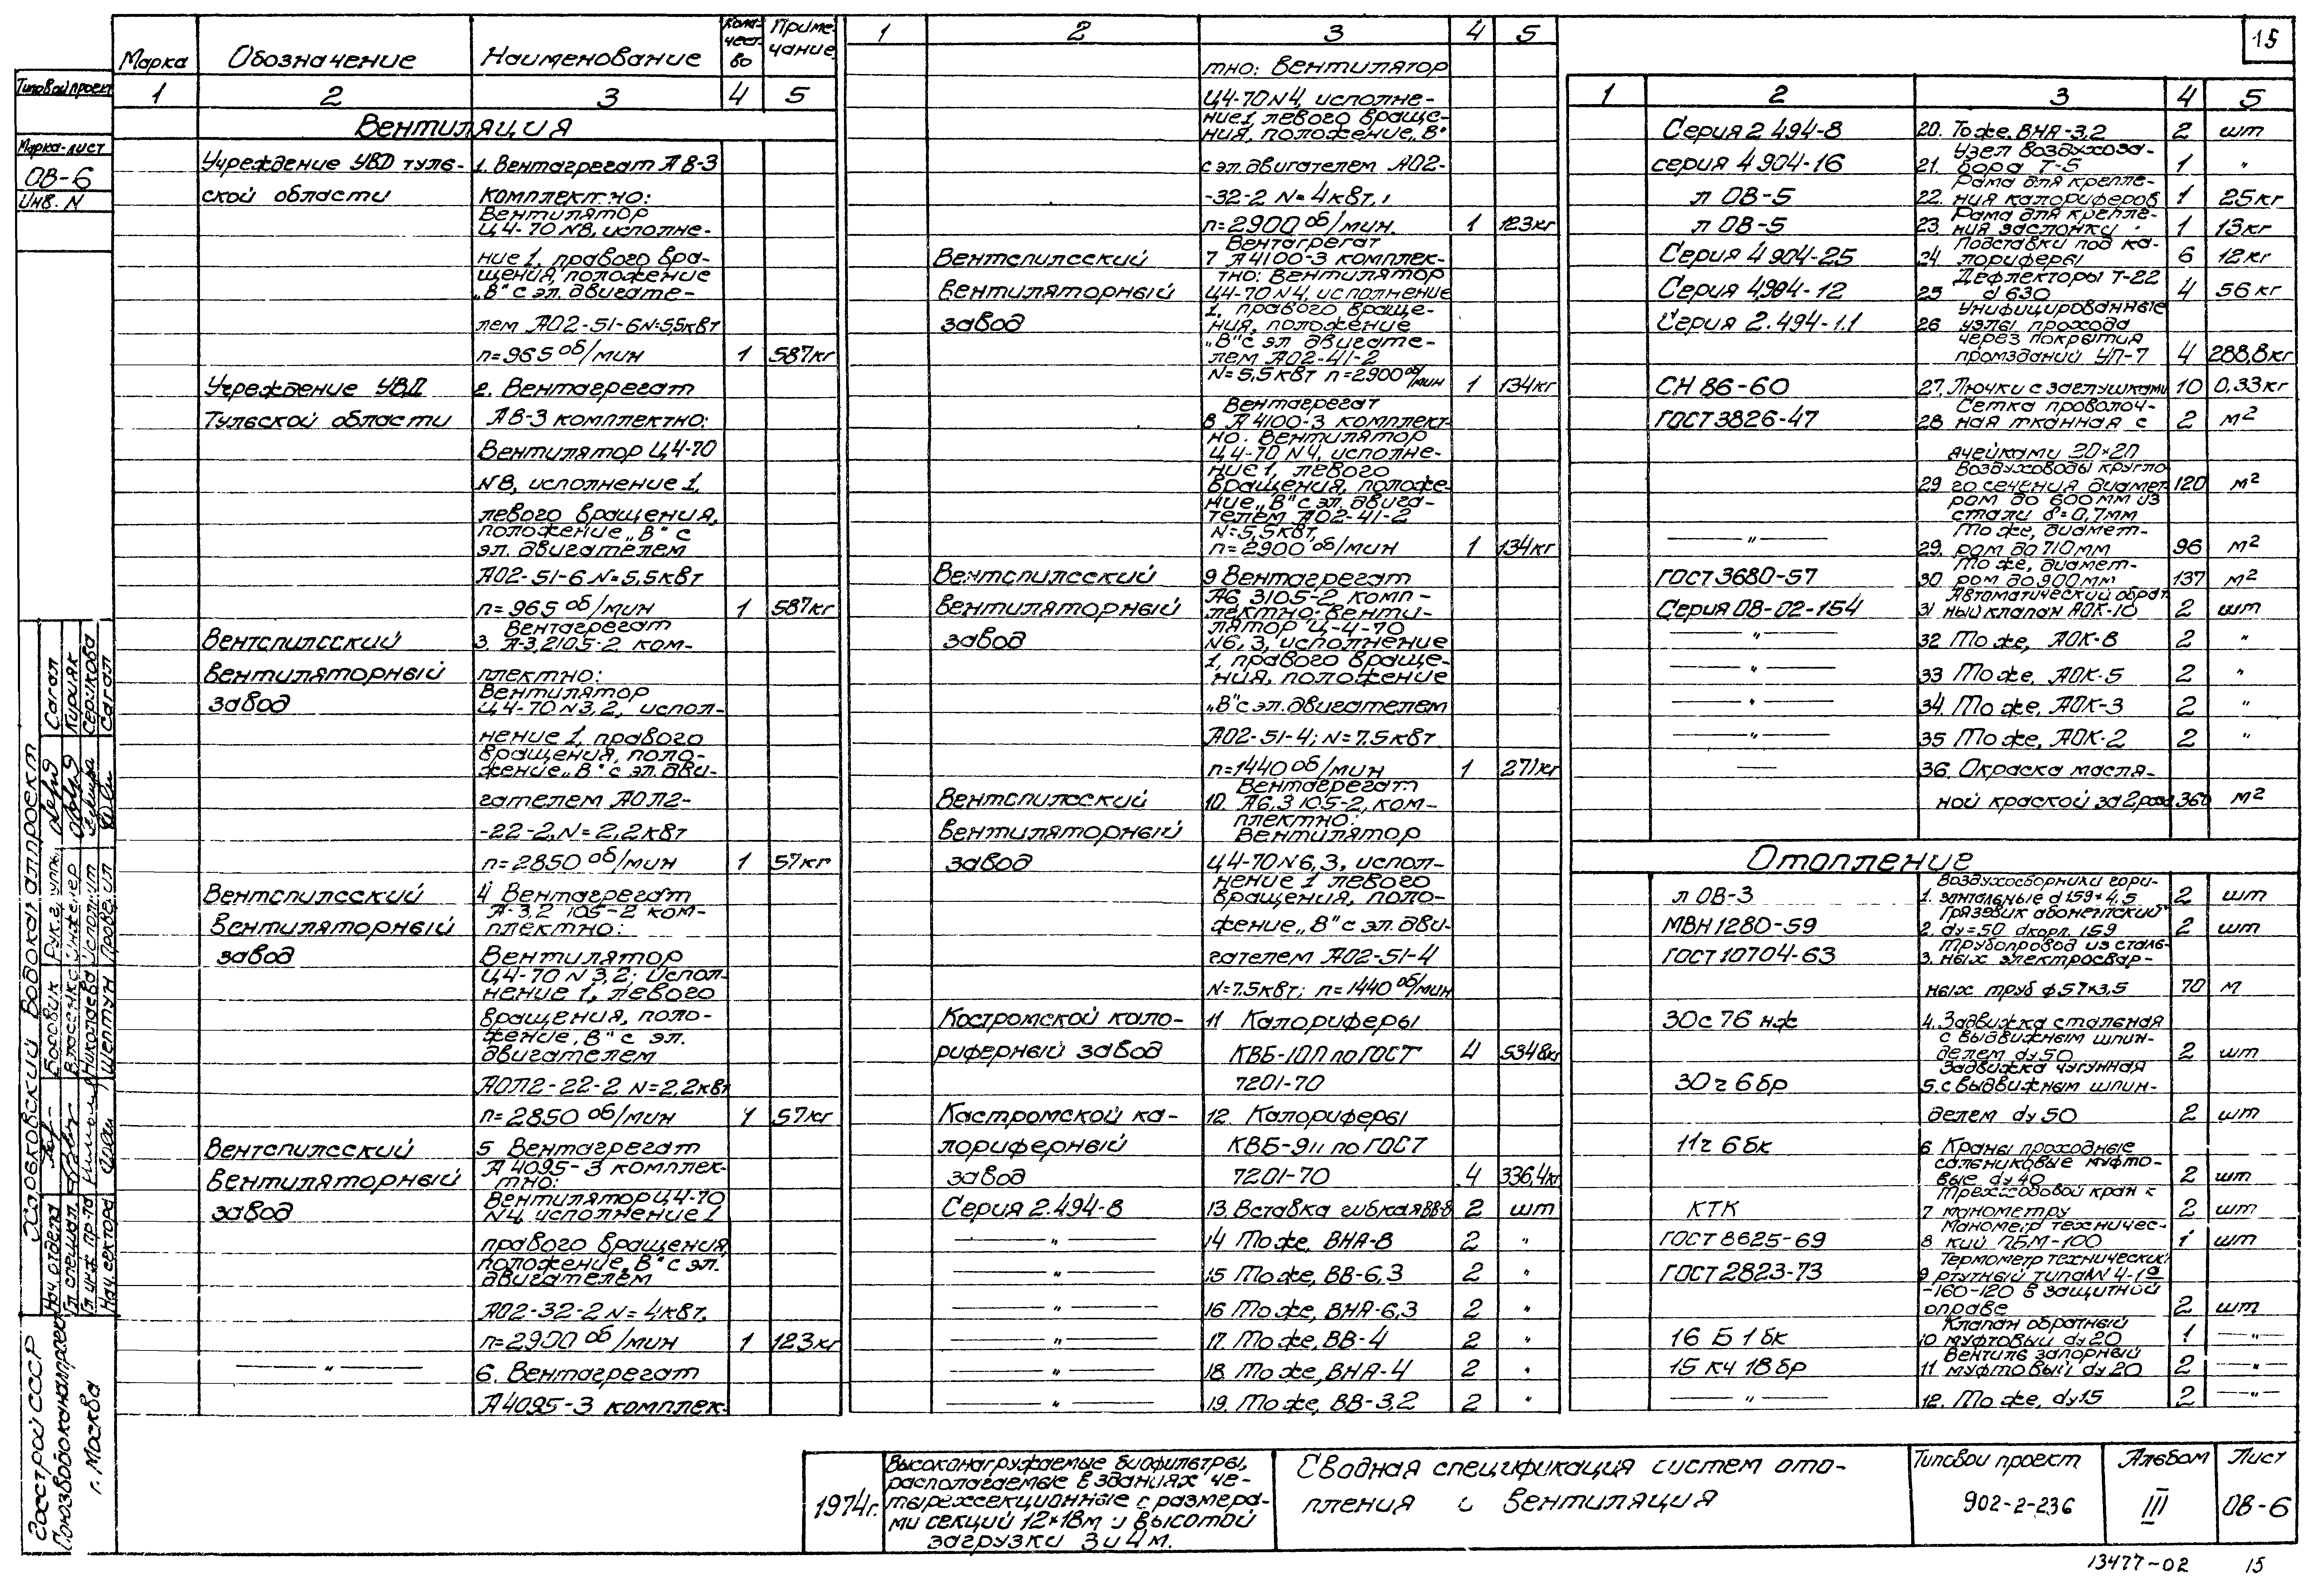 15
Типовой проект
Марка-лист
ОВ-6
Инв. N
Марка Обозначение Наименование Количество Примечание
1 2 3 4 5
Вентиляция
Учреждение УВД туль- 1. Вентагрегат А 8-3
ской области комплектно:
Вентилятор
Ц4-70 N8, исполне-
ние 1, правого вра-
щения, положение
„В" с эл. двигате-
лем АО2-51-6 N=5,5кВт
n=965 об/мин 1 587кг
Учреждение УВД 2. Вентагрегат
Тульской области А8-3 комплектно:
Вентилятор Ц4-70
N8, исполнение 1,
левого вращения,
положение „В" с
эл. двигателем
АО2-51-6 N=5,5кВт
n=965 об/мин 1 587кг
Вентспилсский Вентагрегат
3. А-3,2105-2 ком-
вентиляторный плектно:
завод Вентилятор
Ц4-70 N3,2, испол-
нение 1, правого
вращения, поло-
жение „В" с эл. дви-
гателем АОЛ2-
-22-2, N=2,2кВт
n=2850 об/мин 1 57кг
Вентспилсский 4 Вентагрегат
А-3,2 105-2 ком-
Вентиляторный плектно:
завод Вентилятор
Ц4-70 N 3,2; Испол-
нение 1, левого
вращения, поло-
жение „В" с эл.
двигателем
АОЛ2-22-2 N=2,2кВт
n=2850 об/мин 1 57кг
Вентспилсский 5 Вентагрегат
А 4095-3 комплек-
Вентиляторный тно:
Вентилятор Ц4-70
завод N4, исполнение 1
правого вращения,
положение „В" с эл.
двигателем
АО2-32-2 N=4кВт,
n=2900 об/мин 1 123кг
— " — 6. Вентагрегат
А4095-3 комплек-
1 2 3 4 5
тно: Вентилятор
Ц4-70 N4, исполне-
ние 1, левого враще-
ния, положение „В"
с эл. двигателем АО2-
-32-2 N=4кВт,
n=2900 об/мин. 1 123кг
Вентагрегат
Вентспилсский 7 А4100-3 комплек-
тно: Вентилятор
вентиляторный Ц4-70 N4, исполнение
1, правого враще-
завод ния, положение
„В" с эл двигате-
лем АО2-41-2
N=5,5кВт n=2900 об/мин 1 134кг
Вентагрегат
8 А4100-3 комплект-
но. Вентилятор
Ц4-70 N4, исполне-
ние 1, левого
вращения, положе-
ние „В" с эл. двига-
телем АО2-41-2
N=5,5кВт,
n=2900 об/мин 1 134кг
Вентспилсский 9 Вентагрегат
А6 3105-2 комп-
вентиляторный лектно: венти-
лятор Ц-4-70
завод N6,3, исполнение
1, правого враще-
ния, положение
„В" с эл. двигателем
АО2-51-4; N=7.5кВт
n=1440 об/мин 1 271кг
Вентагрегат
Вентспилсский 10. А6,3 105-2, ком-
плектно:
вентиляторный Вентилятор
завод Ц4-70 N6,3, испол-
нение 1 левого
вращения, поло-
жение „В" с эл. дви-
гателем АО2-51-4
N=7.5кВт; n=1440 об/мин
Костромской кало- 11 Калориферы
риферный завод КВБ-10П по ГОСТ 4 534,8кг
7201-70
Костромской ка- 12. Калориферы
лориферный КВБ-9п по ГОСТ
завод 7201-70 4 336,4кг
Серия 2.494-8 13. Вставка гибкая ВВ-8 2 шт
— " — 14 То же, ВНА-8 2 "
— " — 15 То же, ВВ-6,3 2 "
— " — 16 То же, ВНА-6,3 2 "
— " — 17. То же, ВВ-4 2 "
— " — 18 То же, ВНА-4 2 "
— " — 19. То же, ВВ-3,2 2 "
1 2 3 4 5
Серия 2 494-8 20. То же. ВНА-3,2 2 шт
Узел воздухоза-
серия 4 904-16 21. бора Т-5 1 "
Рама для крепле-
л ОВ-5 22. ния калориферов 1 25кг
Рама для крепле-
л ОВ-5 23. ния заслонки 1 13кг
Подставки под ка-
Серия 4 904-25 24 лориферы 6 12кг
Дефлекторы Т-22
Серия 4,904-12 25 d 630 4 56 кг
Унифицированные
Серия 2.494-1.1 26 узлы прохода
через покрытия
промзданий УП-7 4 288,8кг
СН 86-60 27. Лючки с заглушками 10 0,33кг
Сетка проволоч-
ГОСТ 3826-47 28 ная тканная с 2 м²
ячейками 20×20
Воздуховоды кругло-
29 го сечения диамет- 120 м²
ром до 600мм из
стали δ=0,7мм
То же, диамет-
— " — 29. ром до 710мм 96 м²
То же, диамет-
ГОСТ 3680-57 30 ром до 900мм 137 м²
Автоматический обрат
Серия ОВ-02-154 31 ный клапан АОК-10 2 шт
— " — 32 То же, АОК-8 2 "
— " — 33 То же, АОК-5 2 "
— " — 34. То же, АОК-3 2 "
— " — 35 То же, АОК-2 2 "
— 36. Окраска масля-
ной краской за 2 раза 360 м²
Отопление
Воздухосборники гори-
л ОВ-3 1. зонтальные d 159×4,5 2 шт
Грязевик абонентский
МВН 1280-59 2. dу=50 dкорп. 159 2 шт
Трубопровод из сталь-
ГОСТ 10704-63 3. ных электросвар-
ных труб ф57×3,5 70 м
30с 76 нж 4. Задвижка стальная
с выдвижным шпин-
делем dу 50 2 шт
Задвижка чугунная
30ч 6бр 5. с выдвижным шпин-
делем dу 50 2 шт
11ч 6бк 6 Краны проходные
сальниковые муфто-
вые dу 40 2 шт
Трехходовой кран к
КТК 7 манометру 2 шт
Манометр техничес-
ГОСТ 8625-69 8 кий ПБМ-100 1 шт
Термометр технический
ГОСТ 2823-73 9 ртутный типа N 4-1а
-160-120 в защитной
оправе 2 шт
Клапан обратный
16 Б 1бк 10 муфтовый dу 20 1 — " —
Вентиль запорный
15 кч 18бр 11 муфтовый dу 20 2 — " —
— " — 12. То же, dу15 2 — " —
Госстрой СССР
Союзводоканалпроект
г. Москва
Харьковский Водоканалпроект
Нач. отдела Боровик Рук. группы Сагал
Гл. специал. Власенко Инженер Кирияк
Гл. инж. пр-та Николаева Исполнит Серикова
Нач. сектора Шептун Проверил Сагал
1974г.
Высоконагружаемые биофильтры,
располагаемые в зданиях че-
тырехсекционные с размера-
ми секций 12×18м и высотой
загрузки 3 и 4 м.
Сводная спецификация систем ото-
пления и вентиляция
Типовой проект
902-2-236
Альбом
III
Лист
ОВ-6
13477-02 15